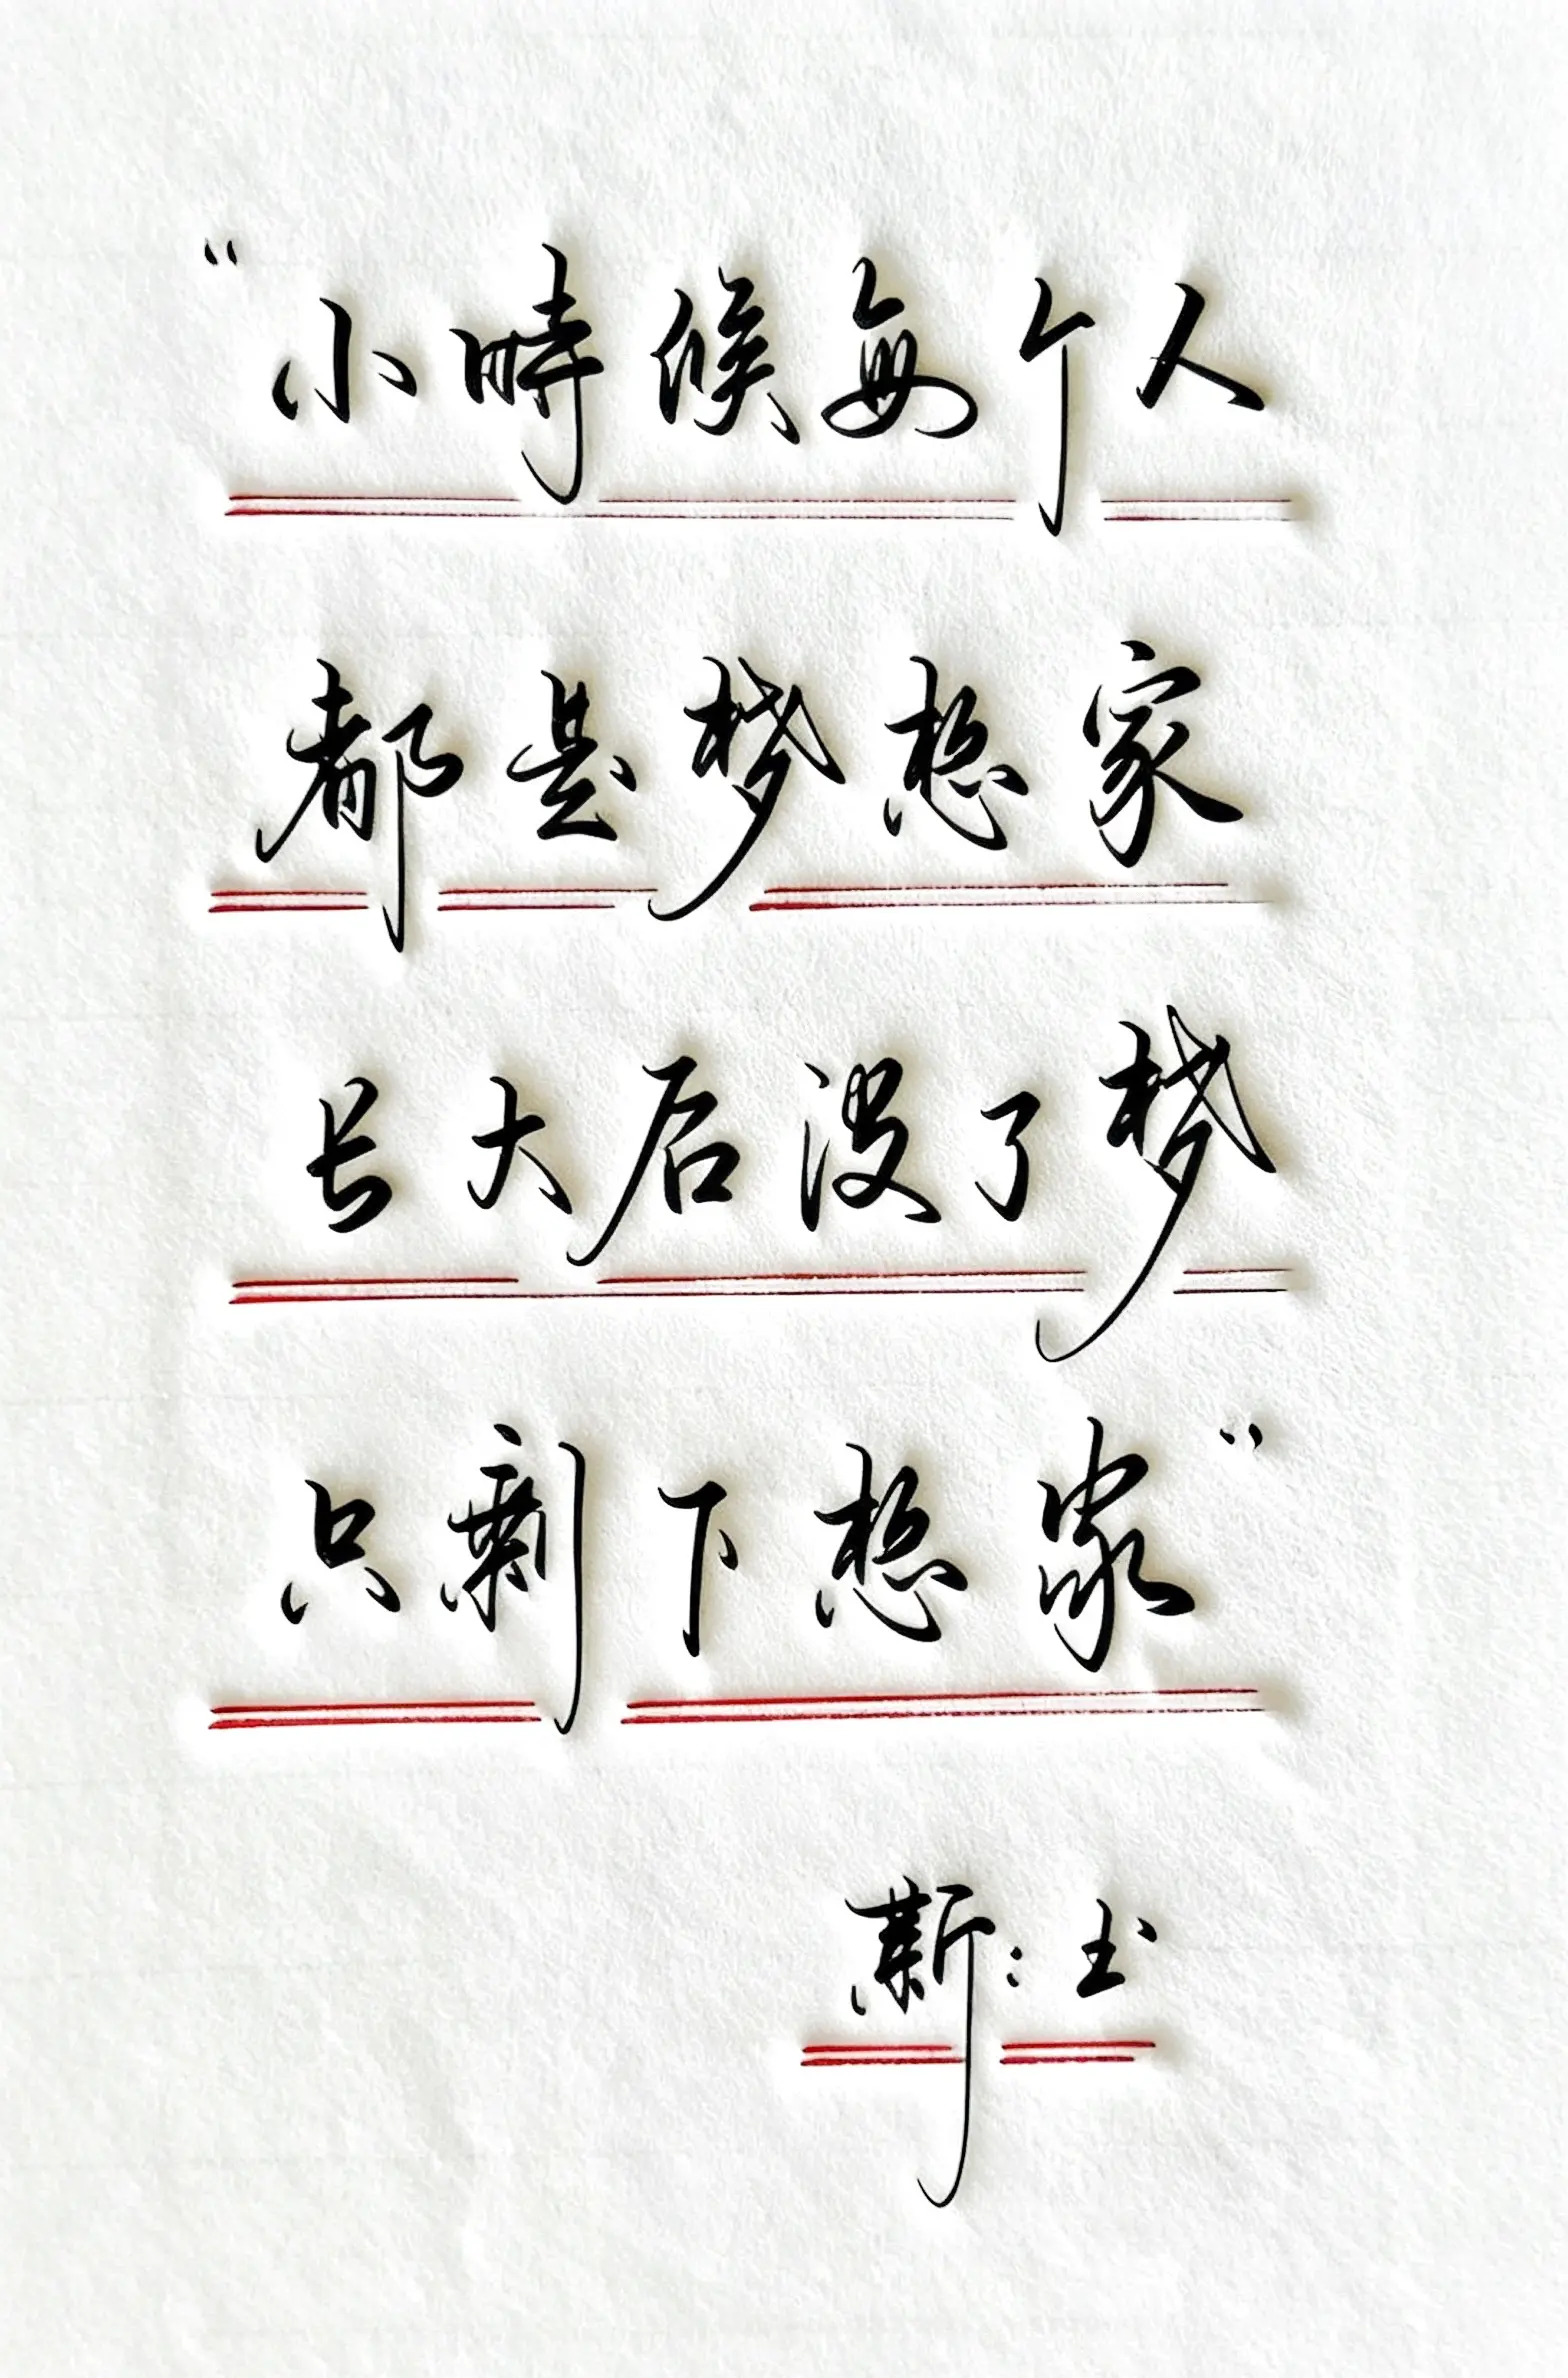 “小時候每个人
都是梦想家
长大后没了梦
只剩下想家”
斯：书